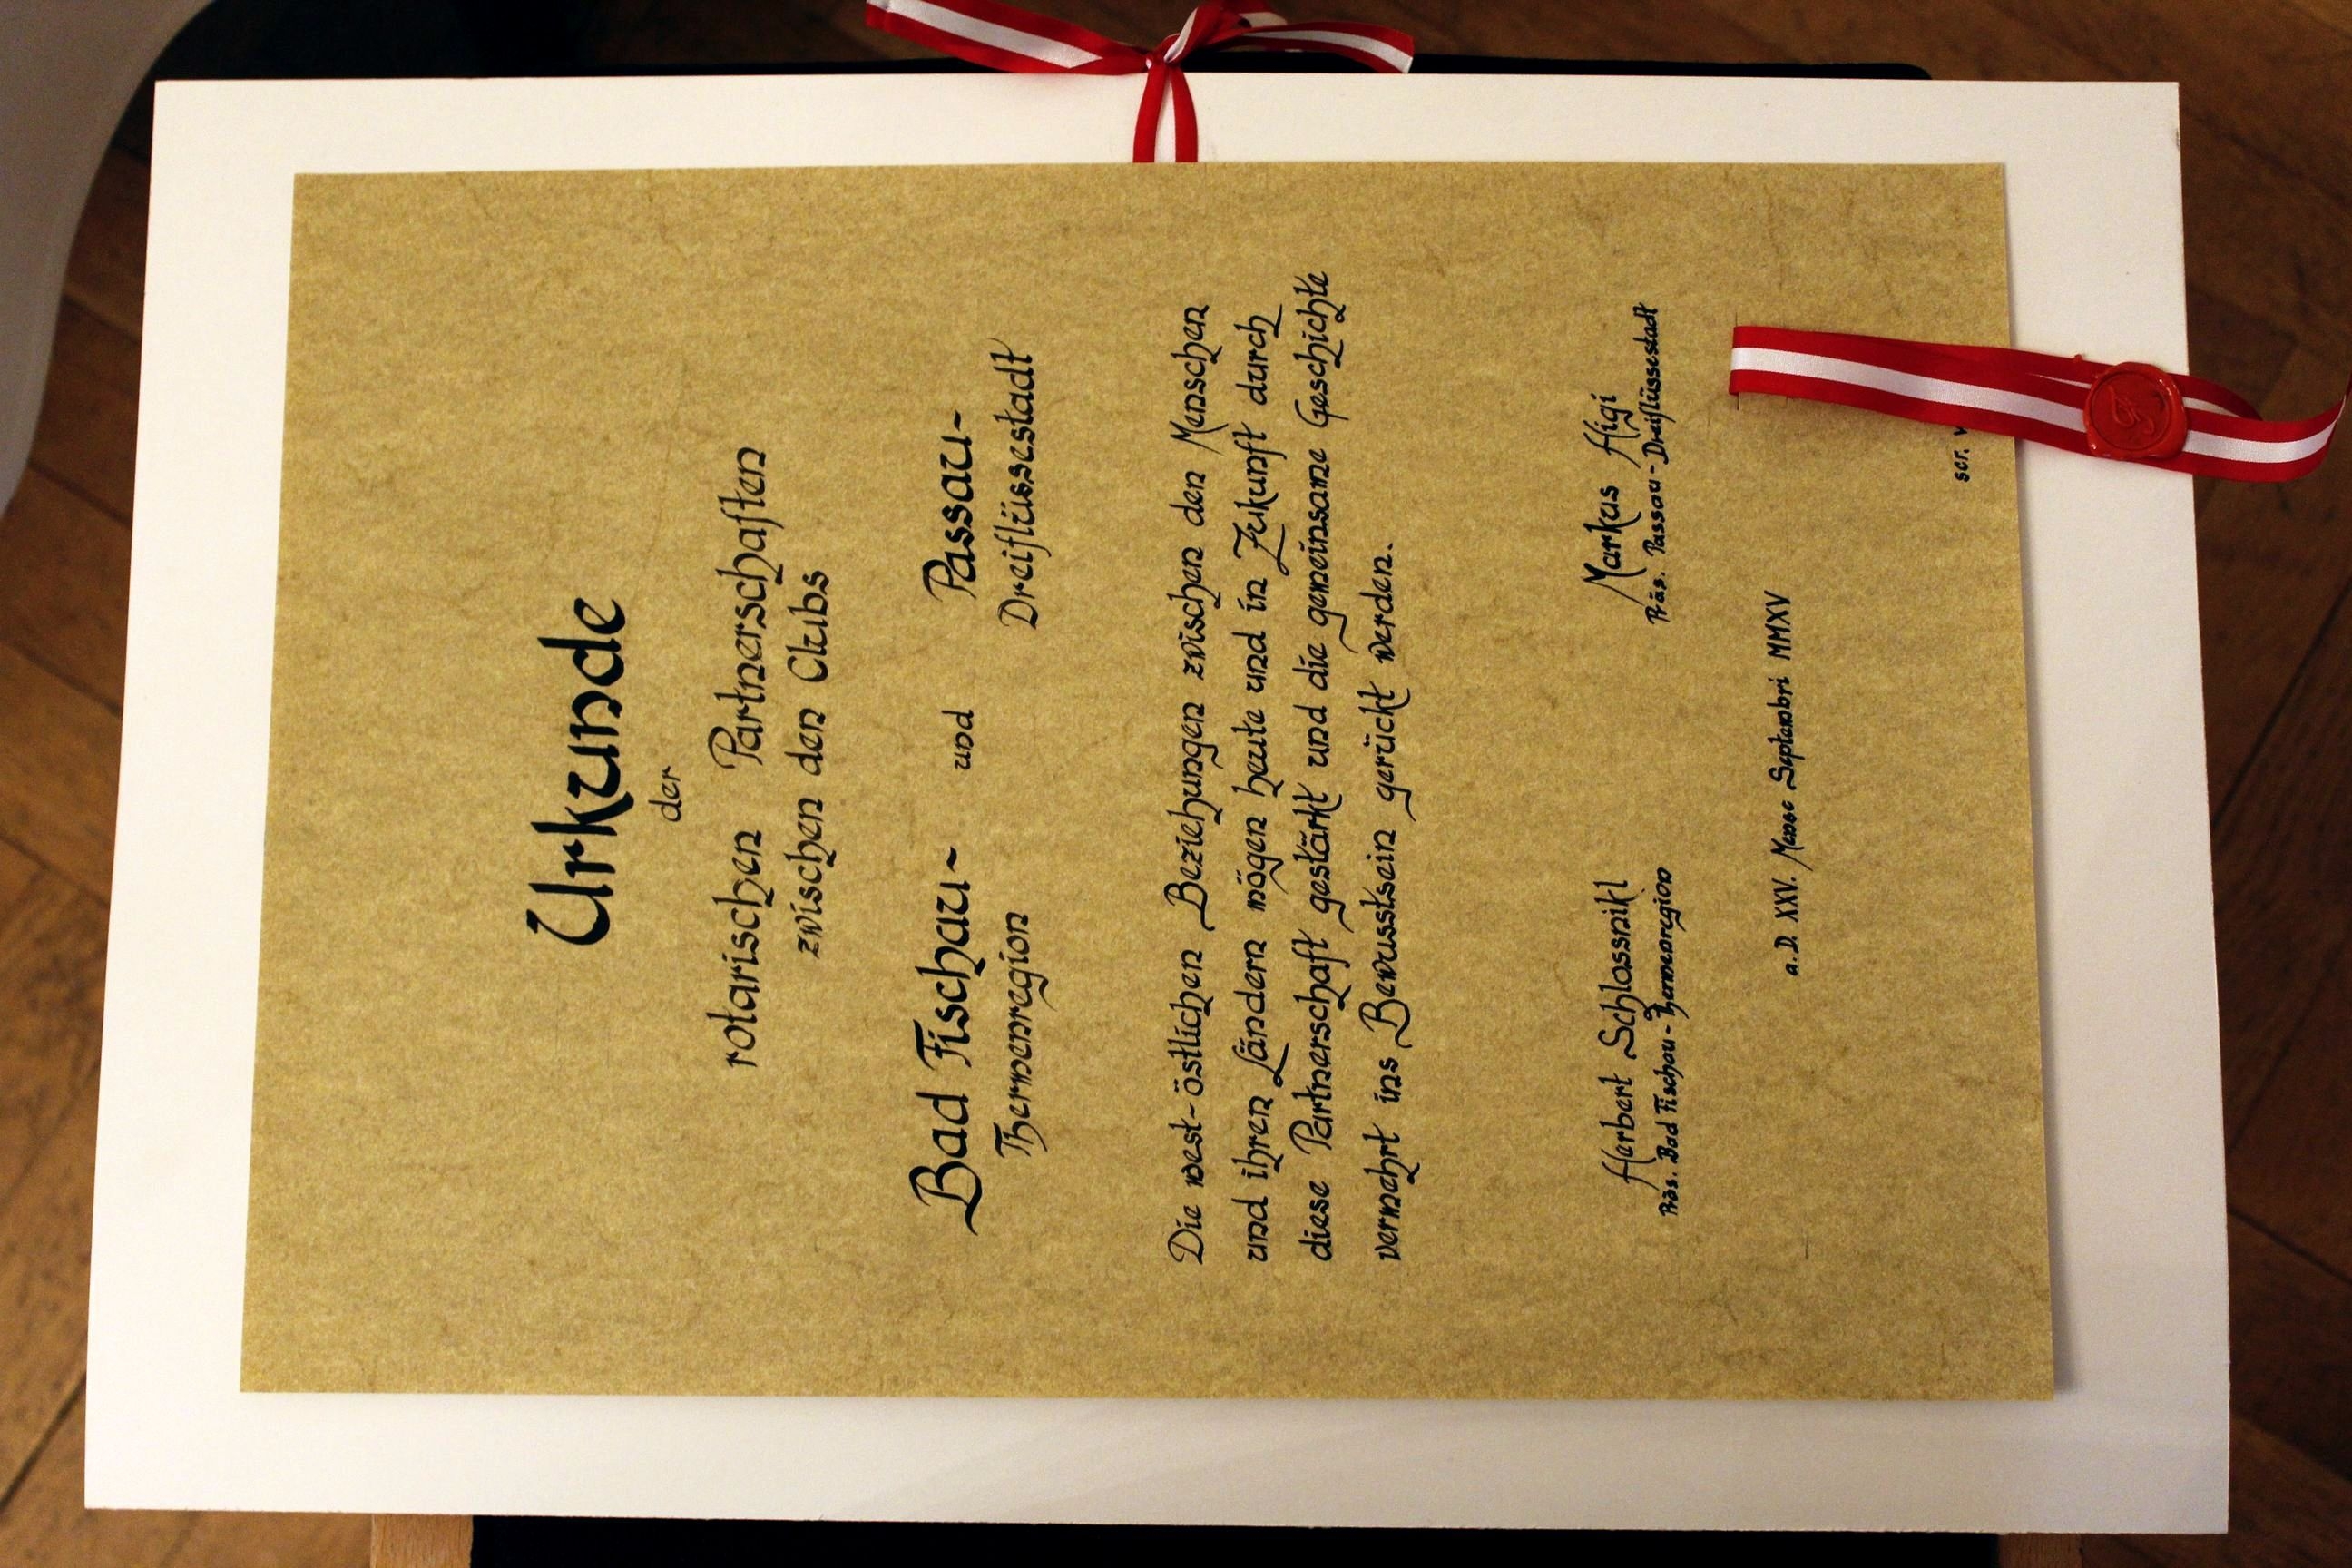 Urkunde
der
rotarischen Partnerschaften
zwischen den Clubs
Bad Fischau- und Passau-
Thermenregion Dreiflüssestadt
Die west-östlichen Beziehungen zwischen den Menschen
und ihren Ländern mögen heute und in Zukunft durch
diese Partnerschaft gestärkt und die gemeinsame Geschichte
vermehrt ins Bewusstsein gerückt werden.
Herbert Schlossnikl Markus Higi
Präs. Bad Fischau-Thermenregion Präs. Passau-Dreiflüssestadt
a.D. XXV. Mense Septembri MMXV
scr.